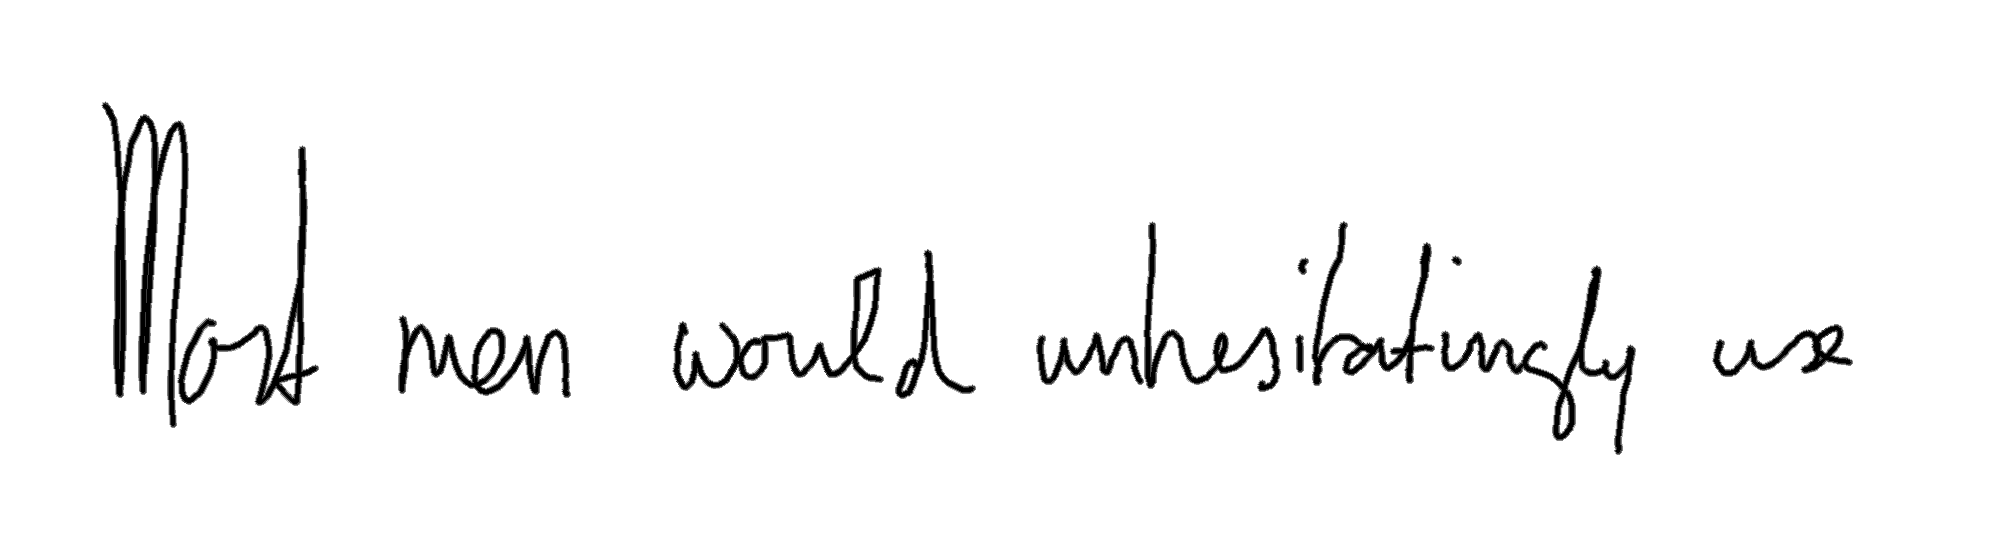 Most men would unhesitatingly use